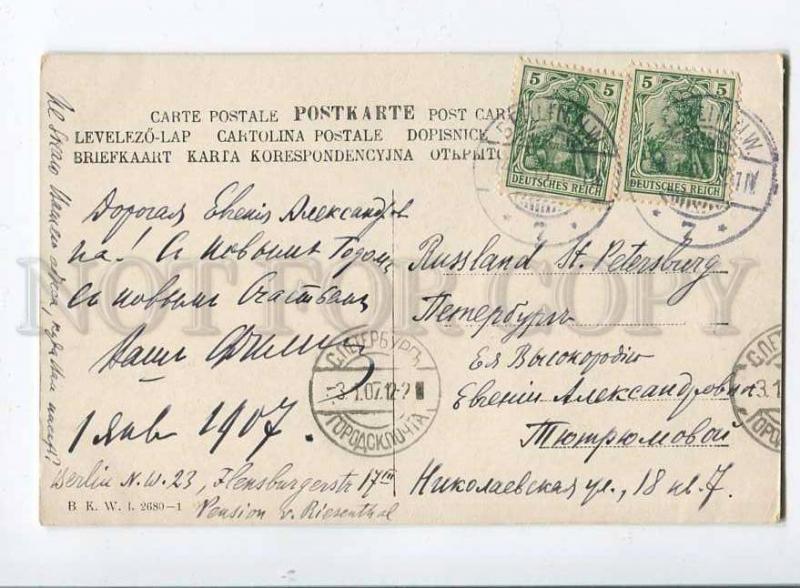 CARTE POSTALE POSTKARTE POST CAR
LEVELEZŐ-LAP CARTOLINA POSTALE DOPISNICE
BRIEFKAART KARTA KORESPONDENCYJNA ОТКРЫТО
5 5
DEUTSCHES REICH
5 5
DEUTSCHES REICH
Дорогая Евгенія Александров
на! Съ Новымъ Годомъ,
Съ новымъ Счастьемъ
Вашъ
1 Янв 1907.
Berlin N.W. 23, Flensburgerstr 17 III
Pension v. Riesenthal
B. K. W. I. 2680-1
Russland St. Petersburg
Петербургъ
Ея Высокородію
Евгеніи Александровнѣ
Тютрюмовой
Николаевская ул., 18 кв. 7.
С.ПЕТЕРБУРГЪ
3.1.07.12-2
ГОРОДСК.ПОЧТА
NOT FOR COPY